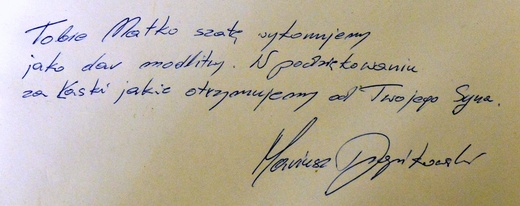 Tobie Matko szatę wykonujemy
jako dar modlitwy. W podziękowaniu
za łaski jakie otrzymujemy od Twojego Syna.
Mariusz